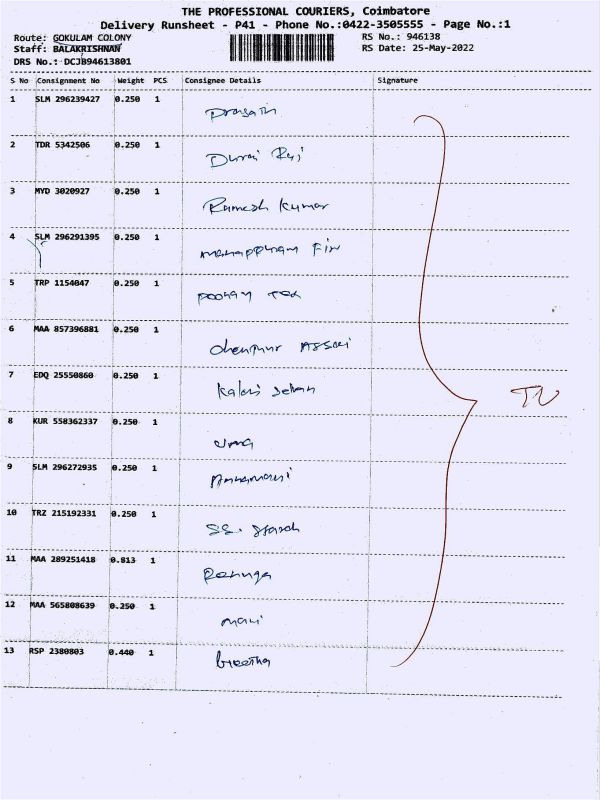 THE PROFESSIONAL COURIERS, Coimbatore
Delivery Runsheet - P41 - Phone No.:0422-3505555 - Page No.:1
Route: GOKULAM COLONY
Staff: BALAKRISHNAN
DRS No.: DCJB94613801
RS No.: 946138
RS Date: 25-May-2022
S No Consignment No Weight PCS Consignee Details Signature
1 SLM 296239427 0.250 1 Prasath
2 TDR 5342506 0.250 1 Durai Raj
3 MYD 3020927 0.250 1 Ramesh Kumar
4 SLM 296291395 0.250 1 manappuram Fin
5 TRP 1154047 0.250 1 poonam Tex
6 MAA 857396881 0.250 1
7 EDQ 25550860 0.250 1
8 KUR 558362337 0.250 1 uma
9 SLM 296272935 0.250 1
10 TRZ 215192331 0.250 1 SS.
11 MAA 289251418 0.813 1 Renuga
12 MAA 565808639 0.250 1 mani
13 RSP 2380803 0.440 1 Geetha